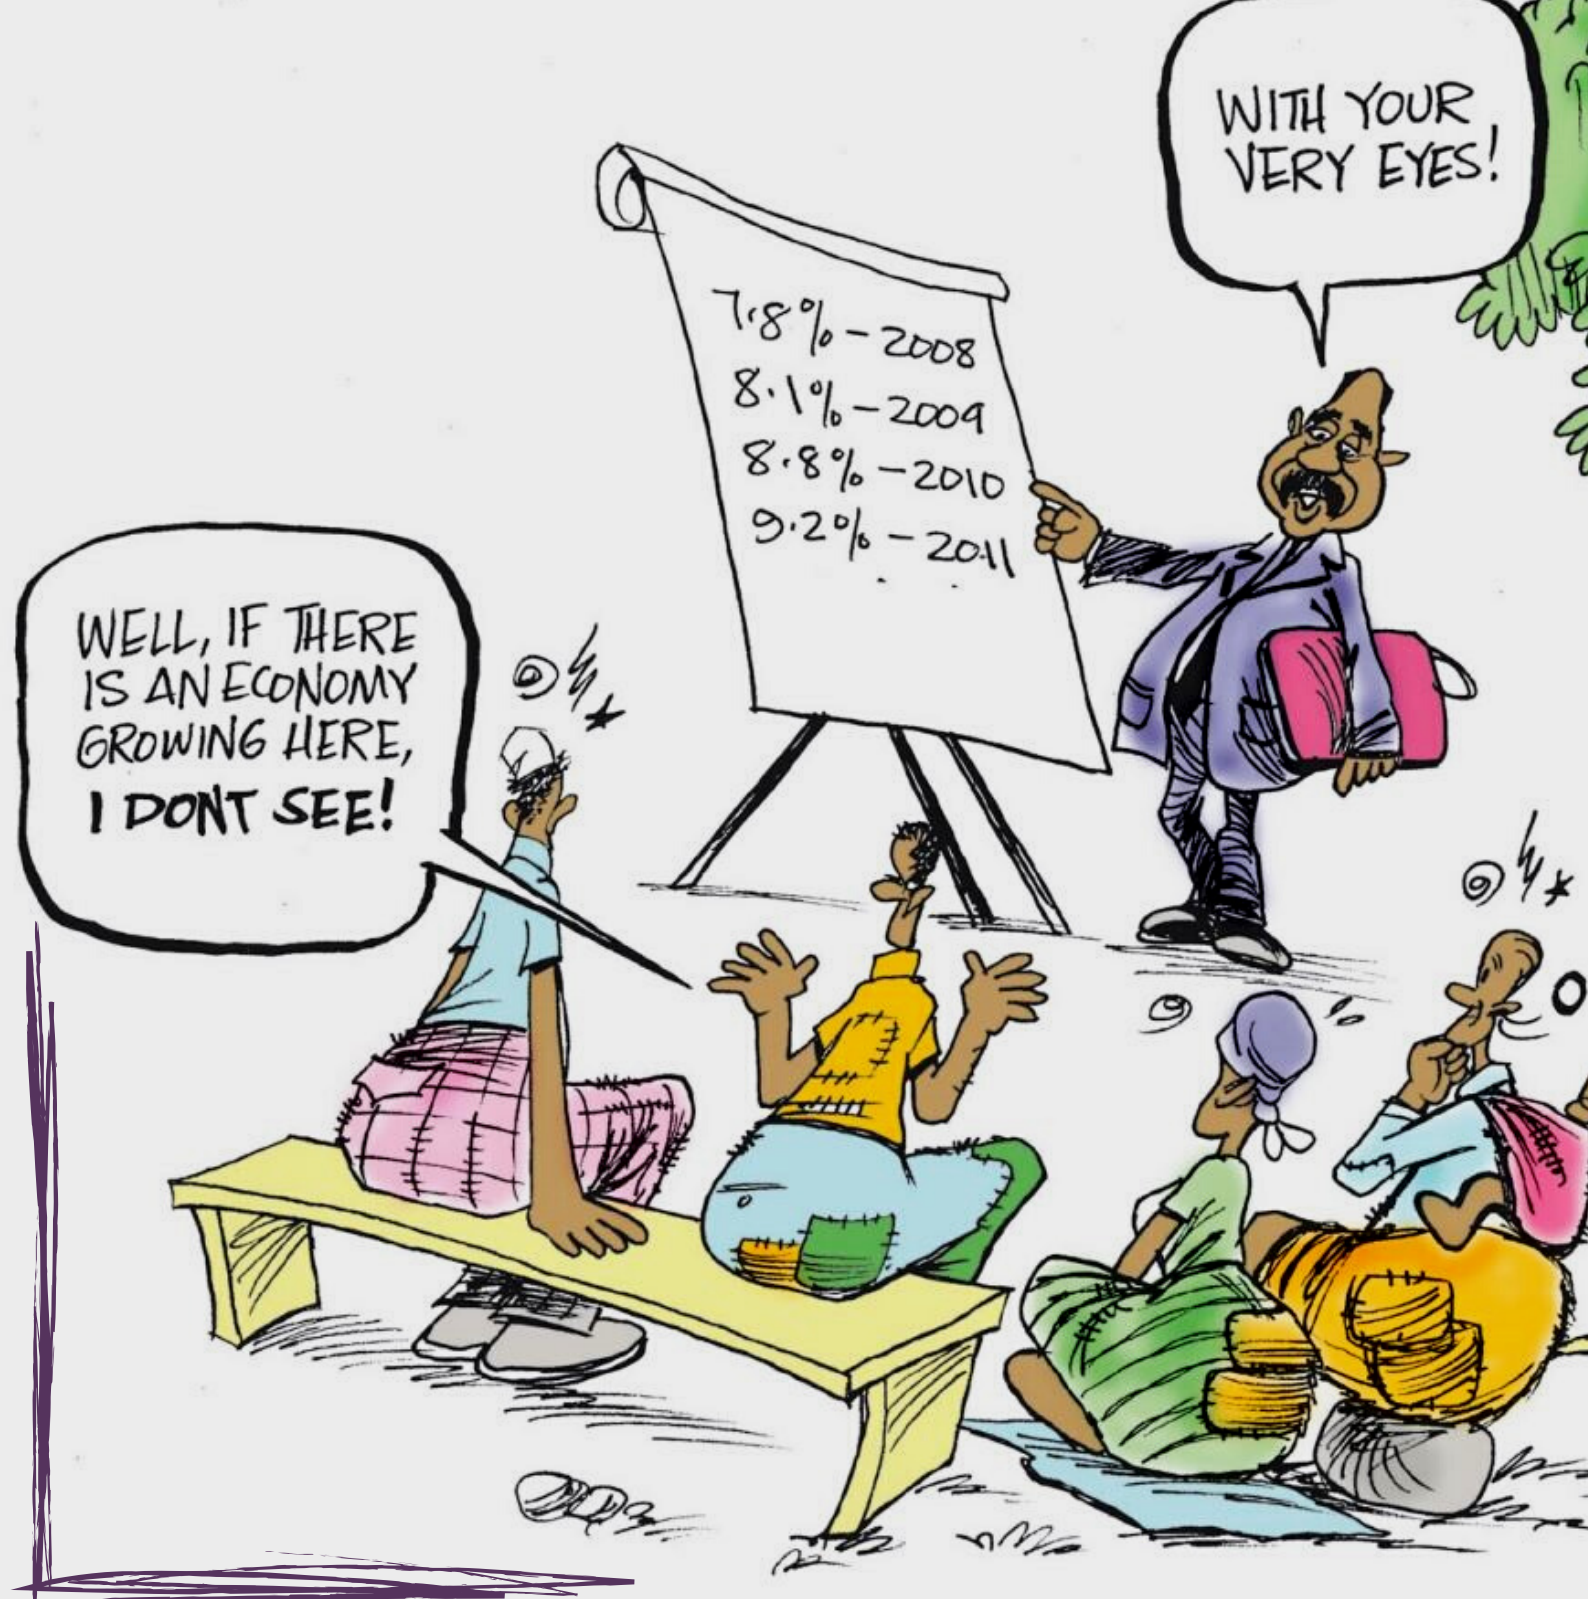 WITH YOUR
VERY EYES!
7.8% - 2008
8.1% - 2009
8.8% - 2010
9.2% - 2011
WELL, IF THERE
IS AN ECONOMY
GROWING HERE,
I DONT SEE!